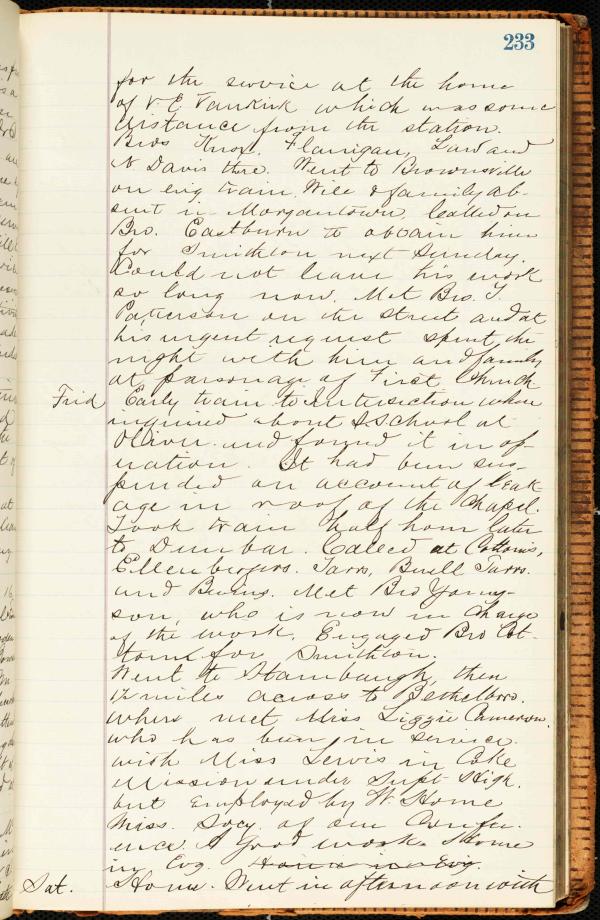 233
for the service at the home
of V. E. Vankirk which was some
distance from the station.
Bros Knox, Flanigan, Law and
N. Davis there. Went to Brownsville
on evg train. Wife & family ab-
sent in Morgantown. Called on
Bro. Eastburn to obtain him
for Smithton next Sunday.
Could not leave his work
so long now. Met Bro. J.
Patterson on the street and at
his urgent request spent the
night with him and family
at parsonage of First Church.
Frid Early train to Intersection where
inquired about S School at
Oliver and found it in op-
eration. It had been sus-
pended on account of leak
age in roof of the chapel.
Took train half hour later
to Dunbar. Called at Cottoms,
Ellenbergers. Tarrs, Burell Tarrs.
and Bevins. Met Bro Young-
son, who is now in charge
of the work. Engaged Bro Cot-
tom for Smithton.
Went to Stambaugh, then
1/2 miles across to Bethelboro.
where met Miss Lizzie Cameron.
who has been in service
with Miss Lewis in Coke
Mission under Supt High.
but employed by W. Home
Miss. Socy. of our Confer-
ence. A good work. Home
in Evg.
Sat. Home. Went in afternoon with